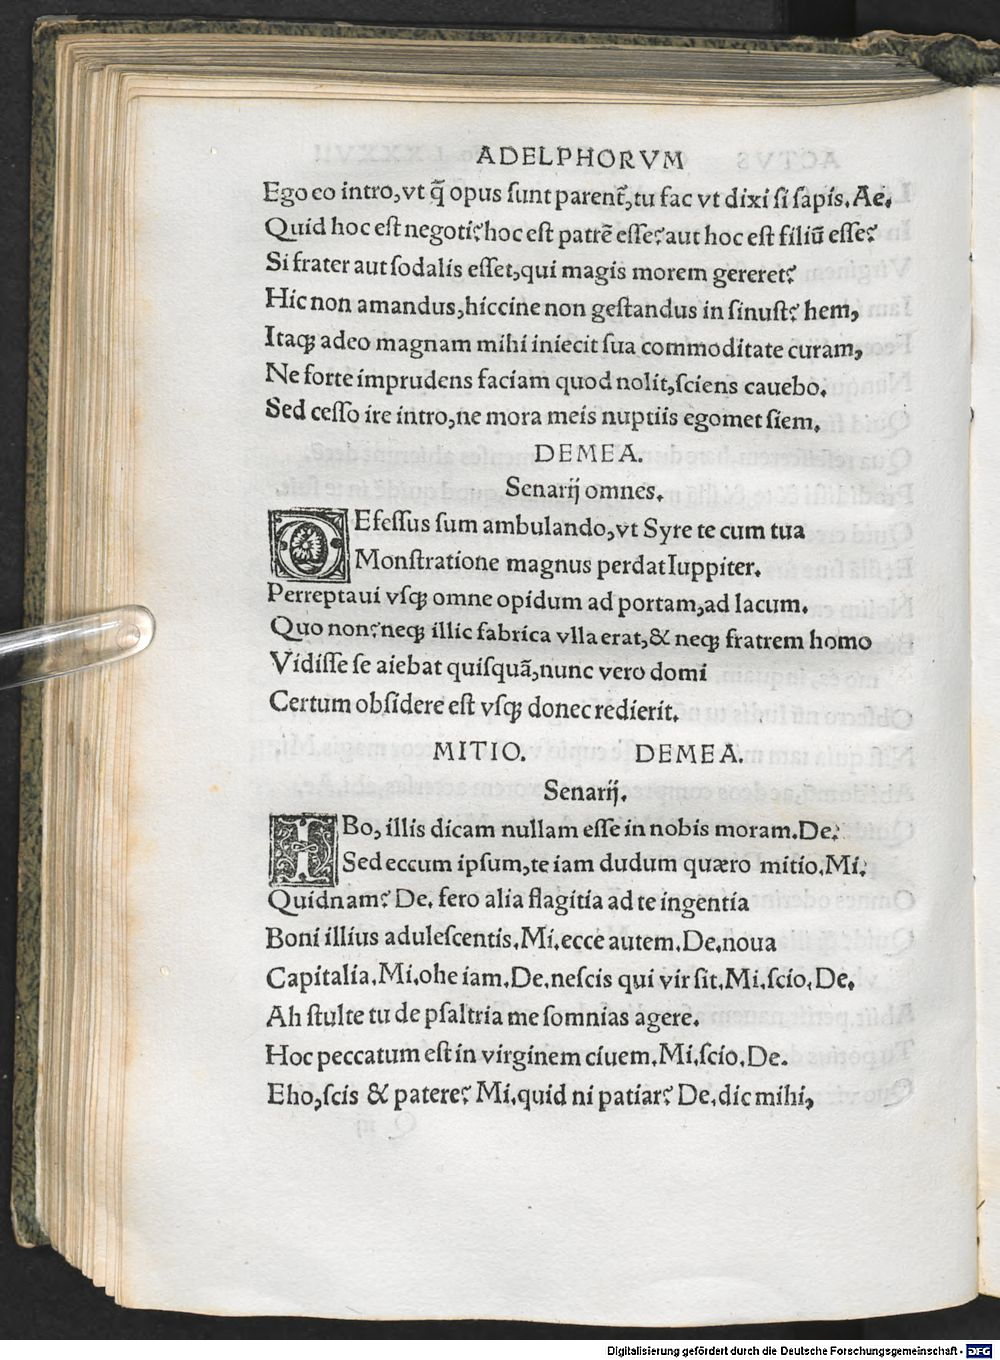 ADELPHORVM
Ego eo intro, vt q̄ opus sunt parent̃, tu fac vt dixi si sapis. Ae.
Quid hoc est negoti? hoc est patrē esse? aut hoc est filiū esse?
Si frater aut sodalis esset, qui magis morem gereret?
Hic non amandus, hiccine non gestandus in sinust? hem,
Itaq; adeo magnam mihi iniecit sua commoditate curam,
Ne forte imprudens faciam quod nolit, sciens cauebo.
Sed cesso ire intro, ne mora meis nuptiis egomet siem.
DEMEA.
Senarij omnes.
DEfessus sum ambulando, vt Syre te cum tua
Monstratione magnus perdat Iuppiter.
Perreptaui vsq; omne opidum ad portam, ad lacum.
Quo non? neq; illic fabrica vlla erat, & neq; fratrem homo
Vidisse se aiebat quisquā, nunc vero domi
Certum obsidere est vsq; donec redierit.
MITIO. DEMEA.
Senarij.
IBo, illis dicam nullam esse in nobis moram. De.
Sed eccum ipsum, te iam dudum quæro mitio. Mi.
Quidnam? De. fero alia flagitia ad te ingentia
Boni illius adulescentis. Mi. ecce autem. De. noua
Capitalia. Mi. ohe iam. De. nescis qui vir sit. Mi. scio. De.
Ah stulte tu de psaltria me somnias agere.
Hoc peccatum est in virginem ciuem. Mi. scio. De.
Eho, scis & patere? Mi. quid ni patiar? De. dic mihi,
Digitalisierung gefördert durch die Deutsche Forschungsgemeinschaft - DFG